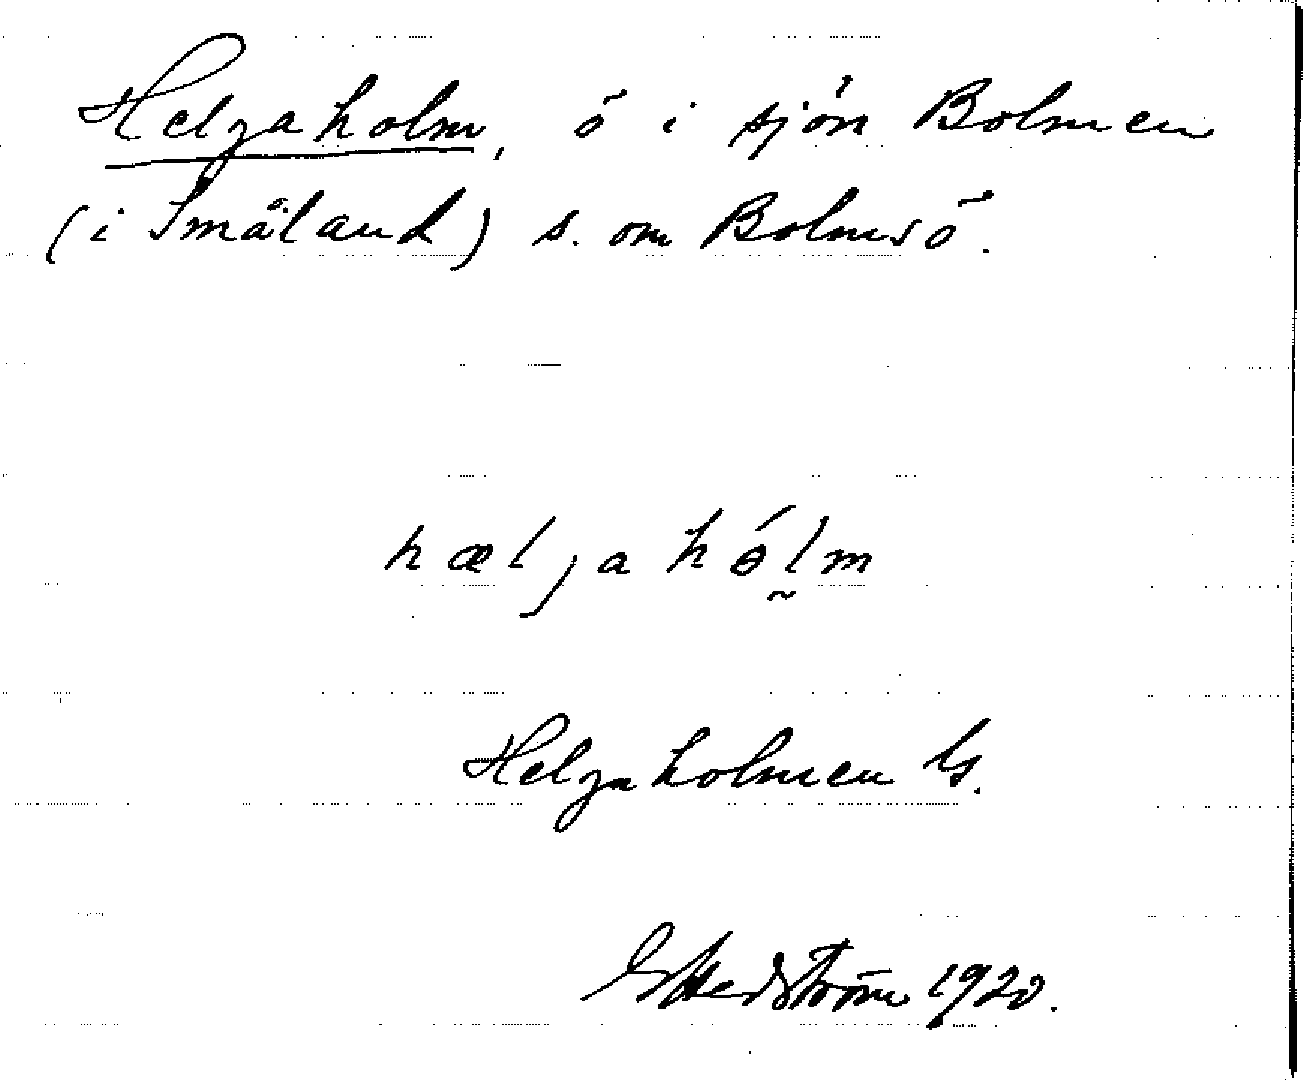 Helgaholm, ö i sjön Bolmen
(i Småland) s. om Bolmsö.
hæljahólm
Helgaholmen G.
G Hedström 1920.